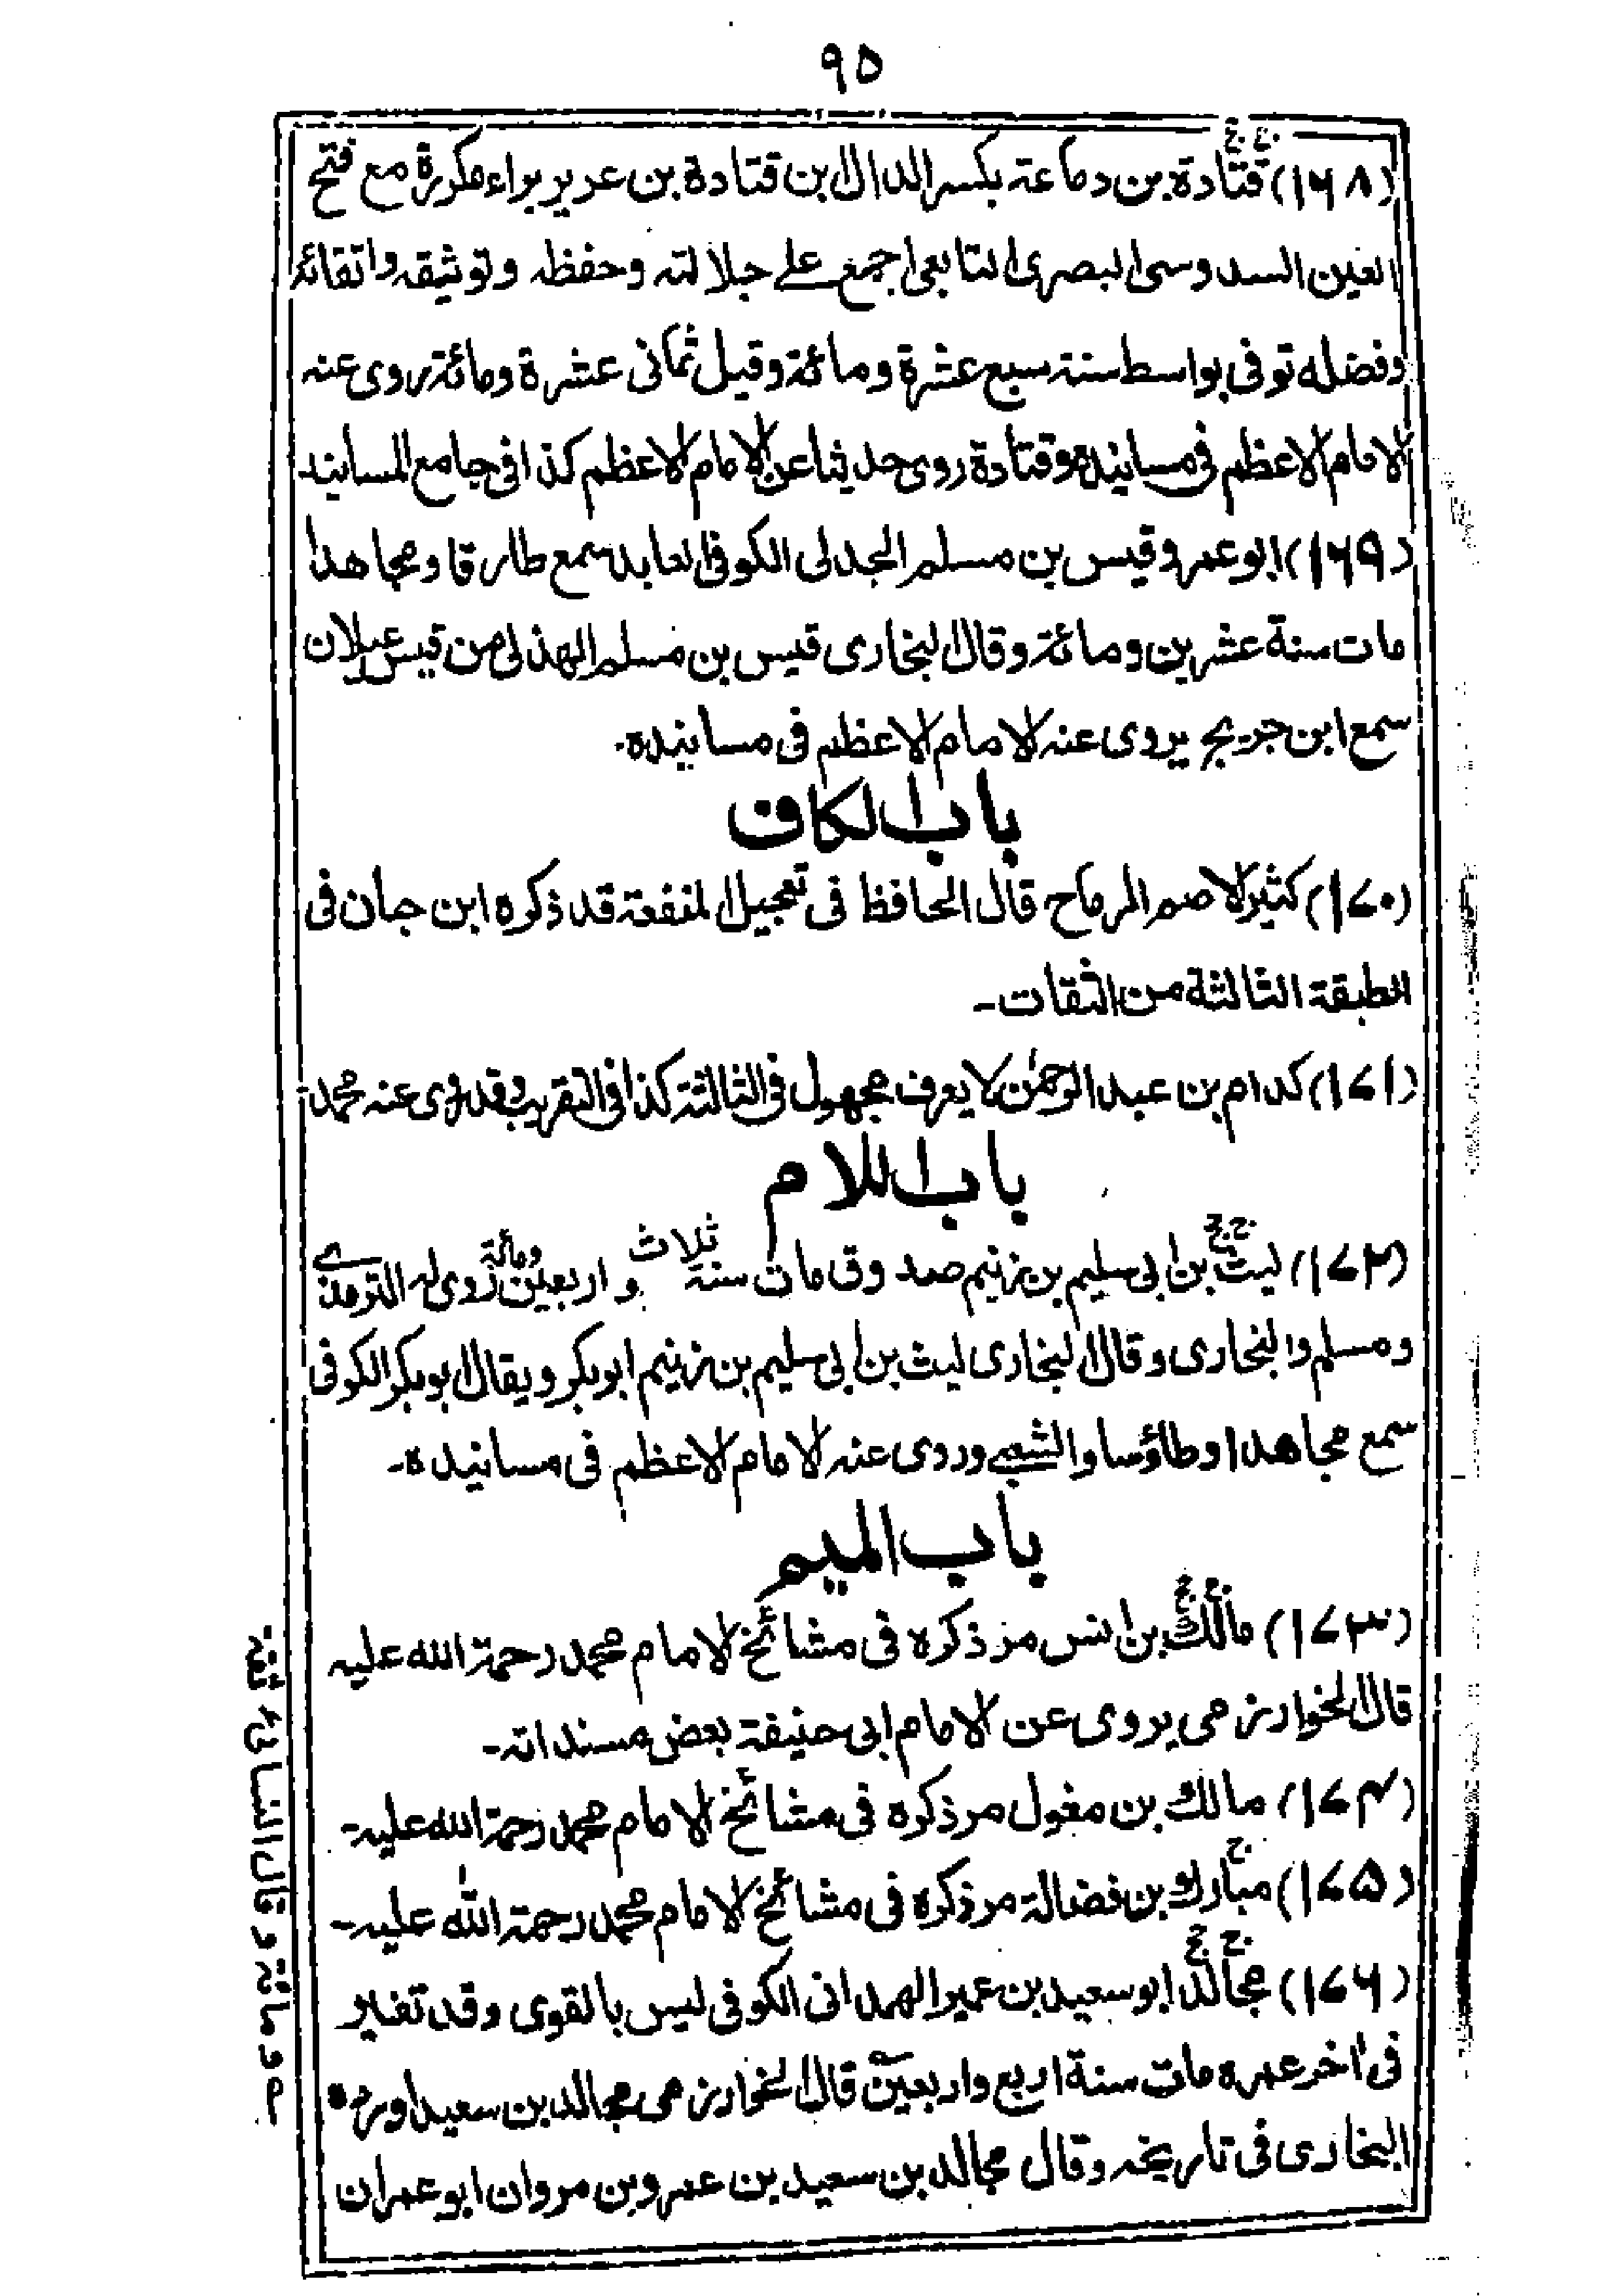 ۹۵
(۱۶۸) قتادة بن دعامة بكسر الدال ابن قتادة بن عزيز براء مكررة مع فتح
العين السدوسى البصرى التابعى اجمع على جلالته وحفظه وتوثيقه واتقانه
وفضله توفى بواسط سنة سبع عشرة ومائة وقيل ثمانى عشرة ومائة روى عنه
الامام الاعظم فى مسانيده وقتادة روى حديثا عن الامام الاعظم كذا فى جامع المسانيد
(۱۶۹) ابو عمرو قيس بن مسلم الجدلى الكوفى العابد سمع طارقا ومجاهدا
مات سنة عشرين ومائة وقال البخارى قيس بن مسلم الهذلى من قيس عيلان
سمع ابن جريج يروى عنه الامام الاعظم فى مسانيده۔
باب الكاف
(۱۷۰) كثير الاصم الرماح قال الحافظ فى تعجيل المنفعة قد ذكره ابن حبان فى
الطبقة الثالثة من الثقات۔
(۱۷۱) كدام بن عبد الرحمٰن لا يعرف مجهول فى الثالثة كذا فى التقريب وقد روى عنه محمد
باب اللام
(۱۷۲) ليث بن ابى سليم بن زنيم صدوق مات سنة ثلاث و اربعين ومائة روى له الترمذى
ومسلم والبخارى وقال البخارى ليث بن ابى سليم بن زنيم ابوبكر ويقال ابوبكر الكوفى
سمع مجاهدا وطاؤسا والشعبى وروى عنه الامام الاعظم فى مسانيده۔
باب الميم
(۱۷۳) مالك بن انس مر ذكره فى مشائخ الامام محمد رحمة الله عليه
قال الخوارزمى يروى عن الامام ابى حنيفة بعض مسنداته۔
(۱۷۴) مالك بن مغول مر ذكره فى مشائخ الامام محمد رحمة الله عليه۔
(۱۷۵) مبارك بن فضالة مر ذكره فى مشائخ الامام محمد رحمة الله عليه۔
(۱۷۶) مجالد ابو سعيد بن عمير الهمدانى الكوفى ليس بالقوى وقد تغير
فى اٰخر عمره مات سنة اربع واربعين قال الخوارزمى مجالد بن سعيد اورده
البخارى فى تاريخه وقال مجالد بن سعيد بن عمرو بن مروان ابو عمران
ومائة و قال النسائى ثقة